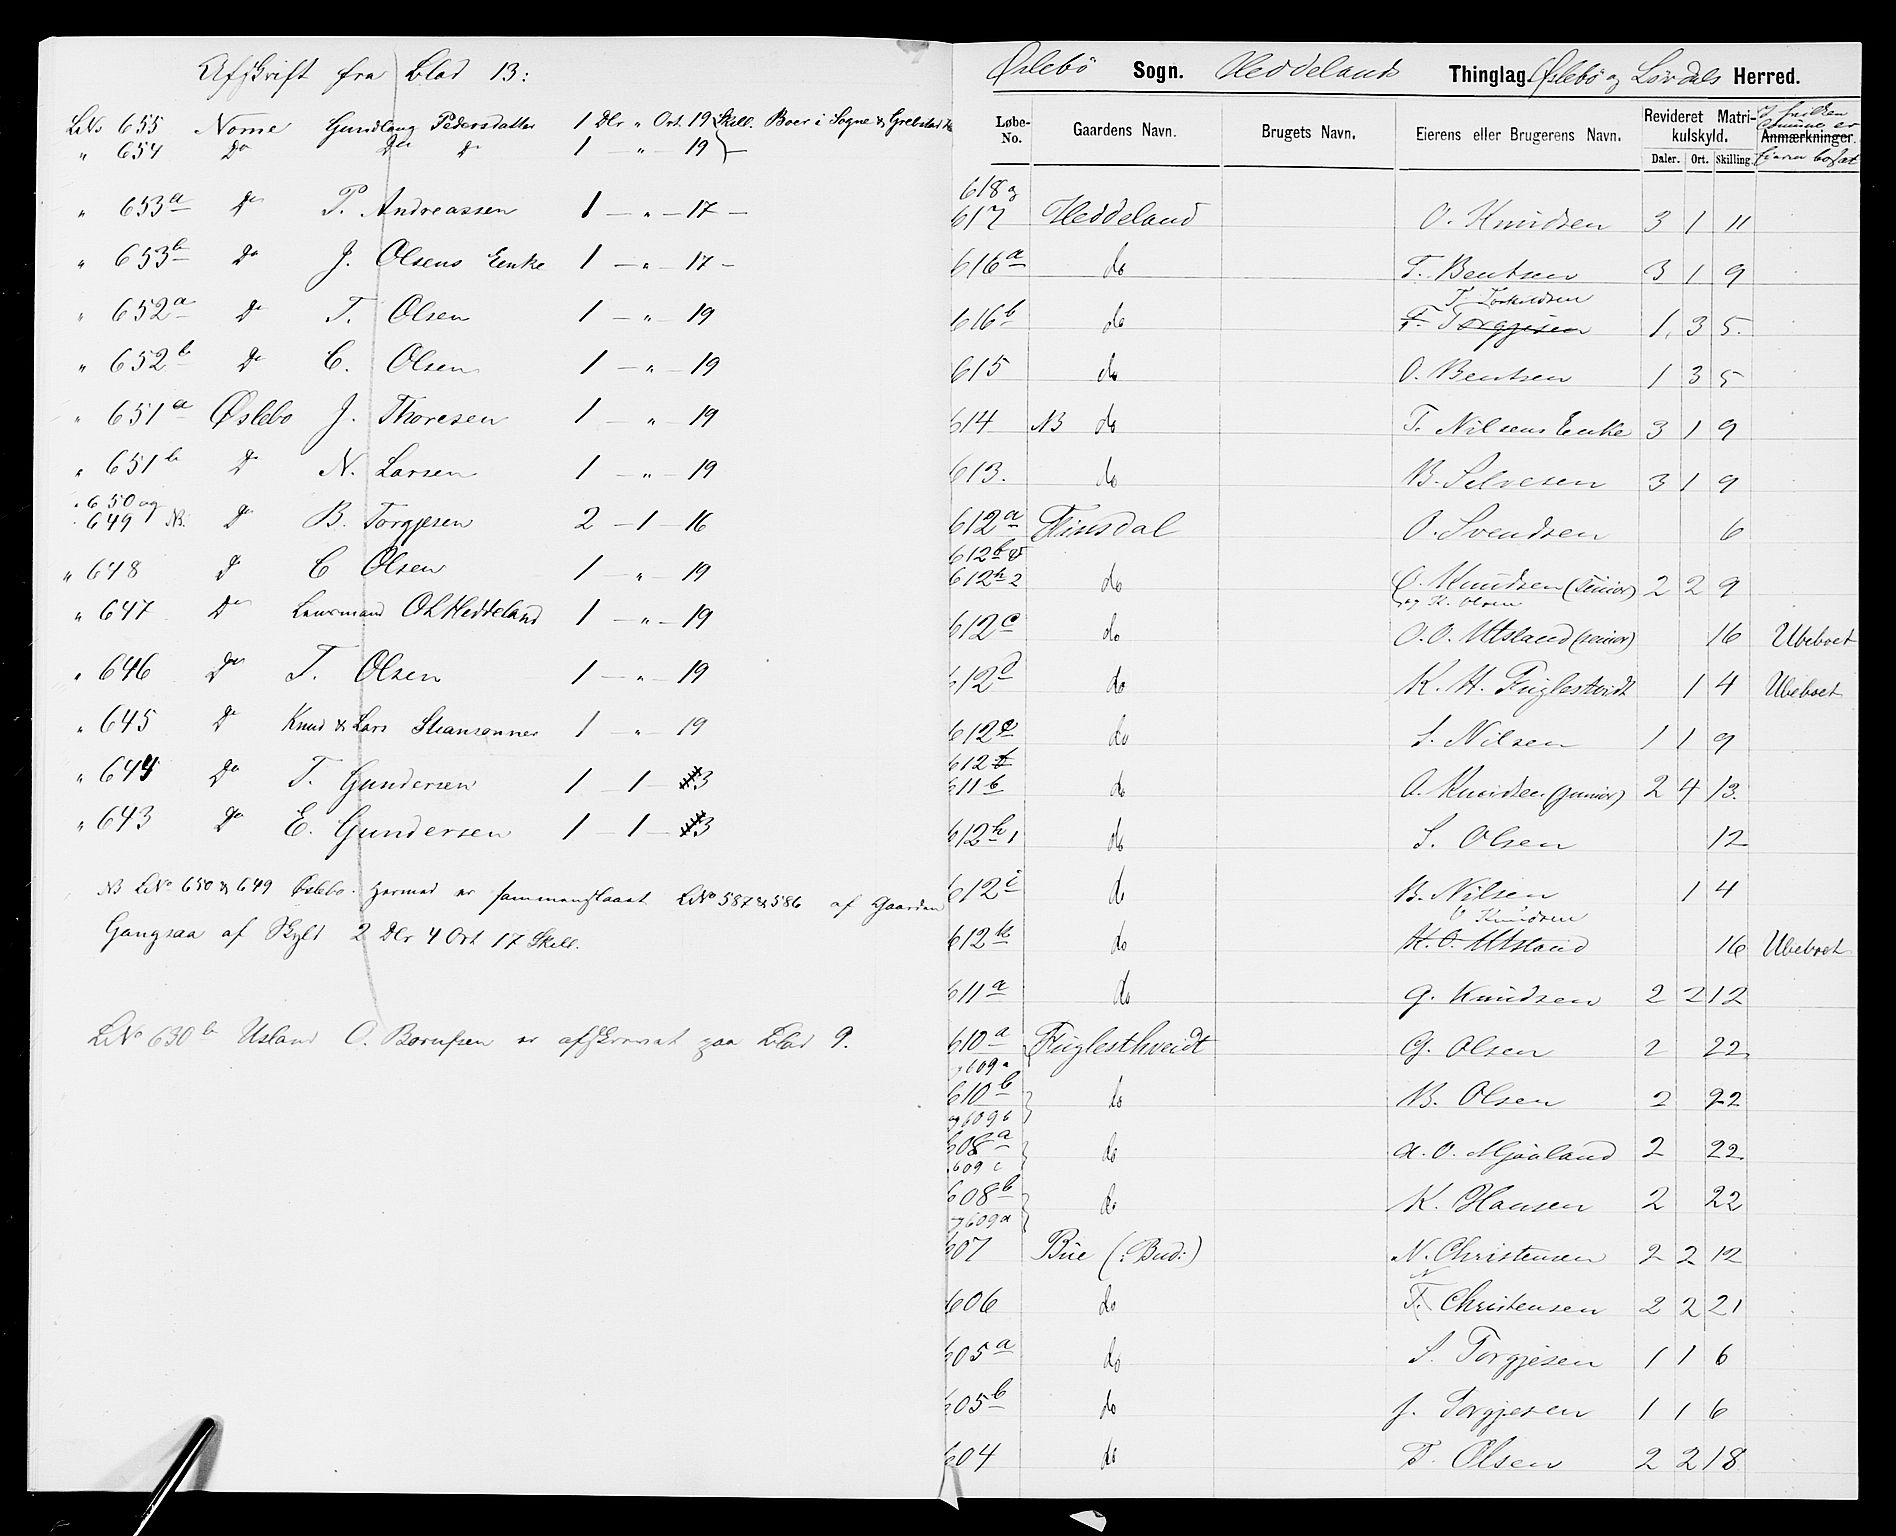 Afskrift fra Blad 13:
LNo 655 Nome Gundlaug Pedersdatter 1 Dlr " Ort 19 Skill. Boer i Sogne & Grebstad
" 654 Do Do Do 1 — " — 19
" 653a Do P. Andreassen 1 — " — 17 —
" 653b Do J. Olsens Enke 1 — " — 17 —
" 652a Do T. Olsen 1 — " — 19
" 652b Do C. Olsen 1 — " — 19
" 651a Øslebo J. Thoresen 1 — " — 19
" 651b Do N. Larsen 1 — " — 19
" 650 og
" 649 NB. Do B. Torgjesen 2 — 1 — 16
" 648 Do C Olsen 1 — " — 19
" 647 Do Lensmand O L Heddeland 1 — " — 19
" 646 Do T. Olsen 1 — " — 19
" 645 Do Knud & Lars Stiansønner 1 " 19
" 644 Do T. Gundersen 1 — 1 — 3
" 643 Do E. Gundersen 1 — 1 — 3
NB LNo 650 & 649 Øslebo. Hermed er sammenslaaet LNo 587 & 586 af Gaarden
Gangsaa af Skyld 2 Dlr 4 Ort 17 Skill.
LNo 630b Usland O. Berntsen er afskrevet paa Blad 9.
Øslebö Sogn. Heddelands Thinglag. Øslebö og Løvdals Herred.
Løbe-No. Gaardens Navn. Brugets Navn. Eierens eller Brugerens Navn. Revideret Matrikulskyld. Anmærkninger.
Daler. Ort. Skilling.
618 og
617 Heddeland O. Knudsen 3 1 11
616a do T. Bentsen 3 1 9
T. Torkildsen
616b do T. Torgjesen 1. 3 5.
615 do O. Bentsen 1 3 5
614 NB do T. Nilsens Enke 3 1 9
613. do B. Selvesen 3 1 9
612a Finsdal O. Svendsen 6
612b &
612h2 do O. Knudsen (senior) 2 2 9
og K. Olsen
612c do O. O. Utsland (senior) 16 Ubeboet
612d do K. H. Fuglestvedt 1 4 Ubeboet
612e do S. Nilsen 1 1 9
612f
611b do O. Knudsen (junior) 2 4 13.
612h1 do S. Olsen 12
612i do B. Nilsen 1 4
O Knudsen
612k do H. O. Utsland 16 Ubeboet
611a do G. Knudsen 2 2 12
610a Fuglesthveidt G. Olsen 2 22
og 609a
610b do B. Olsen 2 22
og 609b
608a do A. O. Mjaaland 2 22
609c
608b do K. Hansen 2 22
og 609d
607 Bue (: Bud:) N. Christensen 2 2 12
N
606 do T. Christensen 2 2 21
605a do S. Torgjesen 1 1 6
605b do J. Torgjesen 1 1 6
604 do T. Olsen 2 2 18